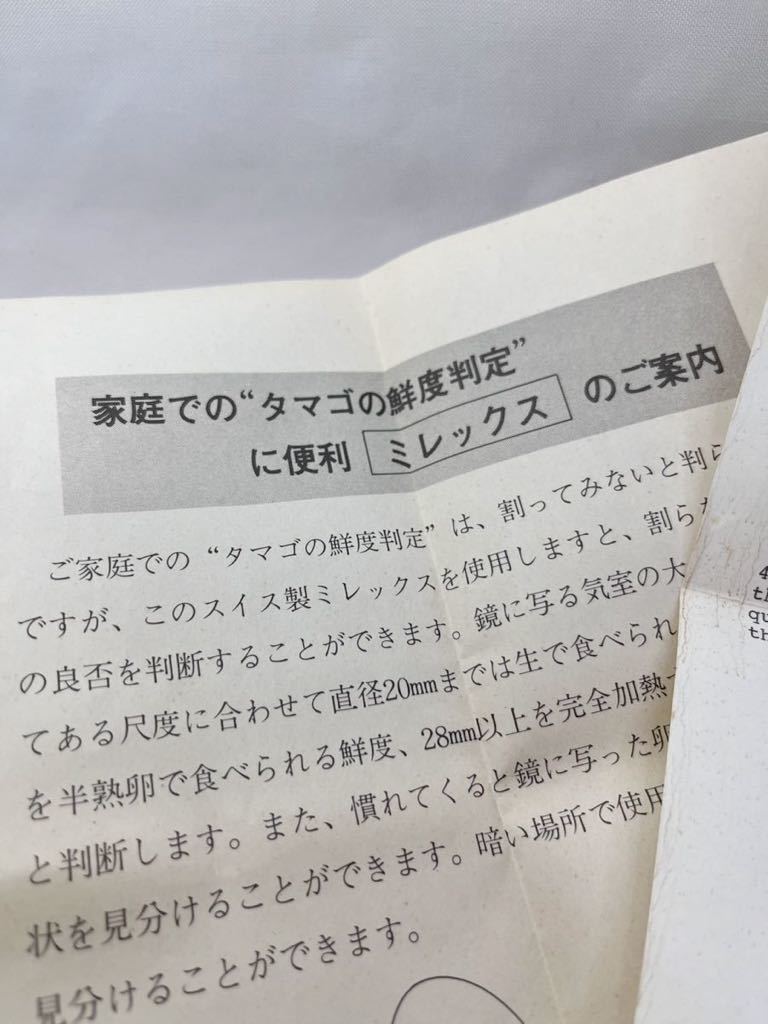 家庭での“タマゴの鮮度判定”
に便利 ミレックス のご案内
ご家庭での“タマゴの鮮度判定”は、割ってみないと判ら
ですが、このスイス製ミレックスを使用しますと、割らな
の良否を判断することができます。鏡に写る気室の大
てある尺度に合わせて直径20mmまでは生で食べられ
を半熟卵で食べられる鮮度、28mm以上を完全加熱
と判断します。また、慣れてくると鏡に写った卵
状を見分けることができます。暗い場所で使用
見分けることができます。
4
th
qu
th